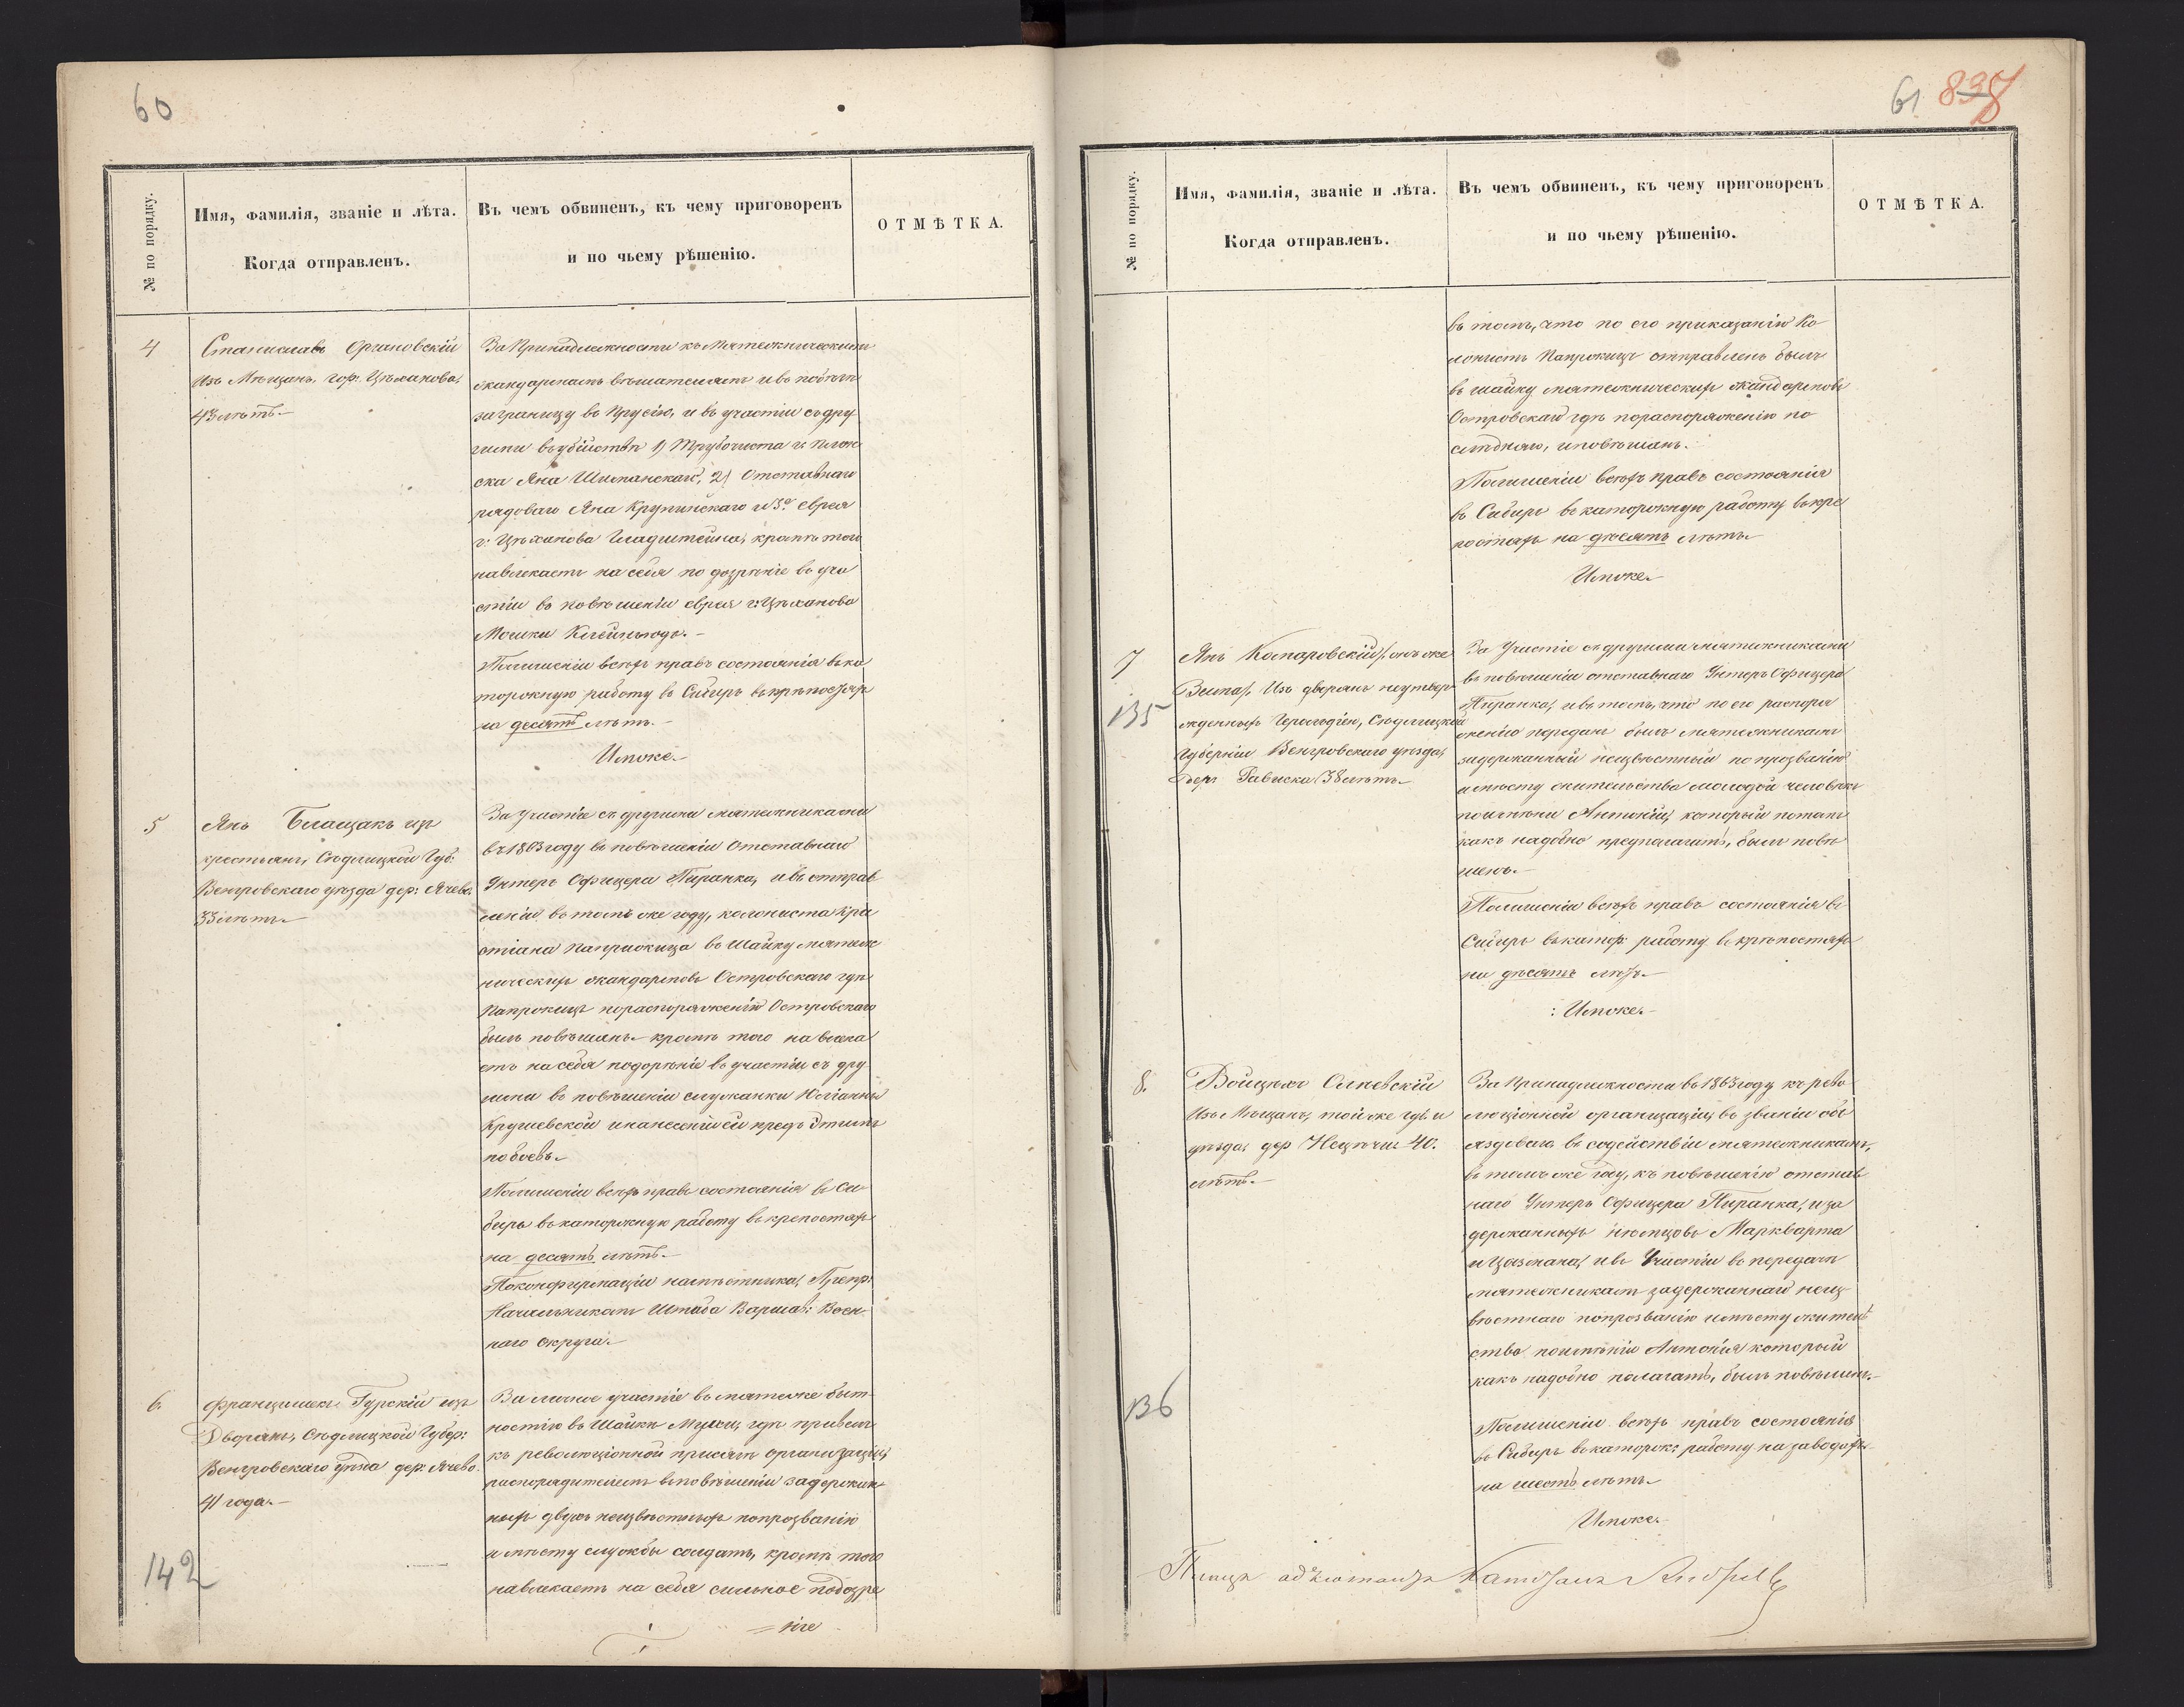 60
№ по порядку.
Имя, фамилія, званіе и лѣта.
Когда отправленъ.
Въ чемъ обвиненъ, къ чему приговоренъ
и по чьему рѣшенію.
ОТМѢТКА.
4
Станиславъ Органовскій
Изъ Мѣщанъ, гор: Цѣханова,
43 лѣтъ.
За Принадлежность къ Мятежническимъ
жандармамъ вѣшателямъ и въ побѣгѣ
за границу въ Прусію, и въ участіи съ дру
гими въ убійствѣ 1) Трубочиста г: Плон
ска Яна Шиманскаго, 2) Отставнаго
рядоваго Яна Крупинскаго и 3е еврея
г: Цѣханова кромѣ того
навлекаетъ на себя подозрѣніе въ уча
стіи въ повѣшеніи еврея г: Цѣханова
Мошки
Полишеніи всѣхъ правъ состоянія въ ка
торожную работу въ Сибирь въ крѣпостяхъ
на десять лѣтъ.
Имъже.
5
Янъ Блащакъ изъ
крестьянъ, Сѣдлицкой Губ:
Венгровскаго уѣзда дер: Ячево
33 лѣтъ.
За участіе съ другими мятежниками
въ 1863 году въ повѣшеніи Отставнаго
Унтеръ Офицера Пиранка, и въ отправ
леніи въ томъ же году, колониста Кри
стіана Паприокица въ Шайку мятеж
ническихъ жандармовъ Островскаго гдѣ
Папрокицъ по распоряженію Островскаго
былъ повѣшанъ. кромѣ того навлека
етъ на себя подозрѣніе въ участіи съ дру
гими въ повѣшеніи служанки Юліанны
Крушевской и нанесеніи ей предъ этимъ
побоевъ.
Полишеніи всѣхъ правъ состоянія въ Си
бирь въ каторжную работу въ крепостяхъ
на десять лѣтъ.
По конфирмаціи намѣстника,
Начальникомъ Штаба Варшав: Воен
наго округа.
6.
Францишекъ Гурскій изъ
Дворянъ, Сѣдлицкой Губер:
Венгровскаго уѣзда дер: Ячево.
41 года.
142
За личное участіе въ мятеже быт
ностію въ Шайки гдѣ привелъ
къ революціонной присягѣ организаціи,
распорядителемъ въ повѣшеніи задержан
ныхъ двухъ неизвѣстныхъ по прозванію
и мѣсту службы солдатъ, кромѣ того
навлекаетъ на себя сильное подозрѣ
= ніе
61 838
№ по порядку.
Имя, фамилія, званіе и лѣта.
Когда отправленъ.
Въ чемъ обвиненъ, къ чему приговоренъ
и по чьему рѣшенію.
ОТМѢТКА.
въ томъ, что по его приказанію Ко
лонистъ Папрокицъ отправленъ былъ
въ шайку мятежническихъ жандармовъ
Островскаго гдѣ по распоряженію по
слѣдняго, и повѣшанъ.
Полишеніи всѣхъ правъ состоянія
въ Сибирь въ каторжную работу въ кре
постяхъ на десять лѣтъ.
Имъже.
7
135
Янъ Коспаровскій /: онъ же
Изъ дворянъ неутвер
жденныхъ Герольдіею, Сѣдлицкой
Губерніи Венгровскаго уѣзда,
дер: 38 лѣтъ.
За Участіе съ другими мятежниками
въ повѣшеніи отставнаго Унтеръ Офицера
Пиранка, и въ томъ, что по его распоря
женію переданъ былъ мятежникамъ
задержанный неизвѣстный по прозванію
и мѣсту жительства молодой человѣкъ
по имени Антоній, который потомъ
какъ надобно предполагать, былъ повѣ
шенъ.
Полишеніи всѣхъ правъ состоянія въ
Сибирь въ катор: работу въ крѣпостяхъ
на десять лѣтъ.
Имъже.
8.
136
Войцѣхъ Олневскій
Изъ Мѣщанъ, той же губ: и
уѣзда, дер 40.
лѣтъ.
За Принадлежность въ 1863 году къ рево
люціонной организаціи, въ званіи объ
ѣздоваго въ содействіи мятежникамъ,
въ томъ же году, къ повѣшенію отстав
наго Унтеръ Офицера Пиранка, и за
держанныхъ нѣмцовъ Маркварта
и Цазмана, и въ Участіи въ передачѣ
мятежникамъ задержаннаго неиз
вѣстнаго по прозванію и мѣсту житель
ства по имени Антонія который
какъ надобно полагать, былъ повѣшенъ.
Полишеніи всѣхъ правъ состоянія
въ Сибирь въ каторж: работу на заводахъ
на шесть лѣтъ.
Имъже.
Плацъ адъютантъ Капитанъ